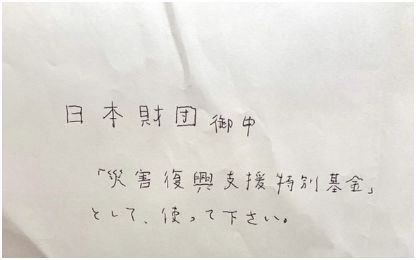 日本財団 御中
「災害復興支援特別基金」
として、使って下さい。